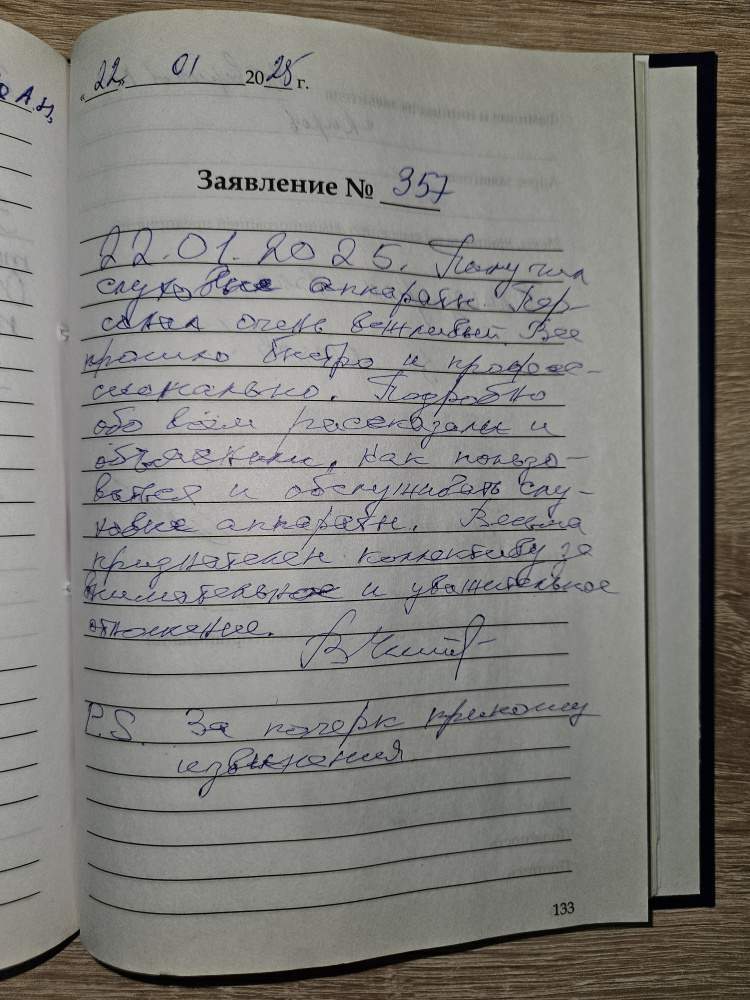 а А.Н,
«22» 01 2025 г.
Заявление № 357
22.01.2025. Получил
слуховые аппараты. Пер-
сонал очень вежливый. Все
прошло быстро и професс-
сионально. Подробно
обо всём рассказали и
объяснили, как пользо-
ваться и обслуживать слу-
ховые аппараты. Весьма
признателен коллективу за
внимательное и уважительное
отношение.
P.S. За почерк приношу
извинения.
133